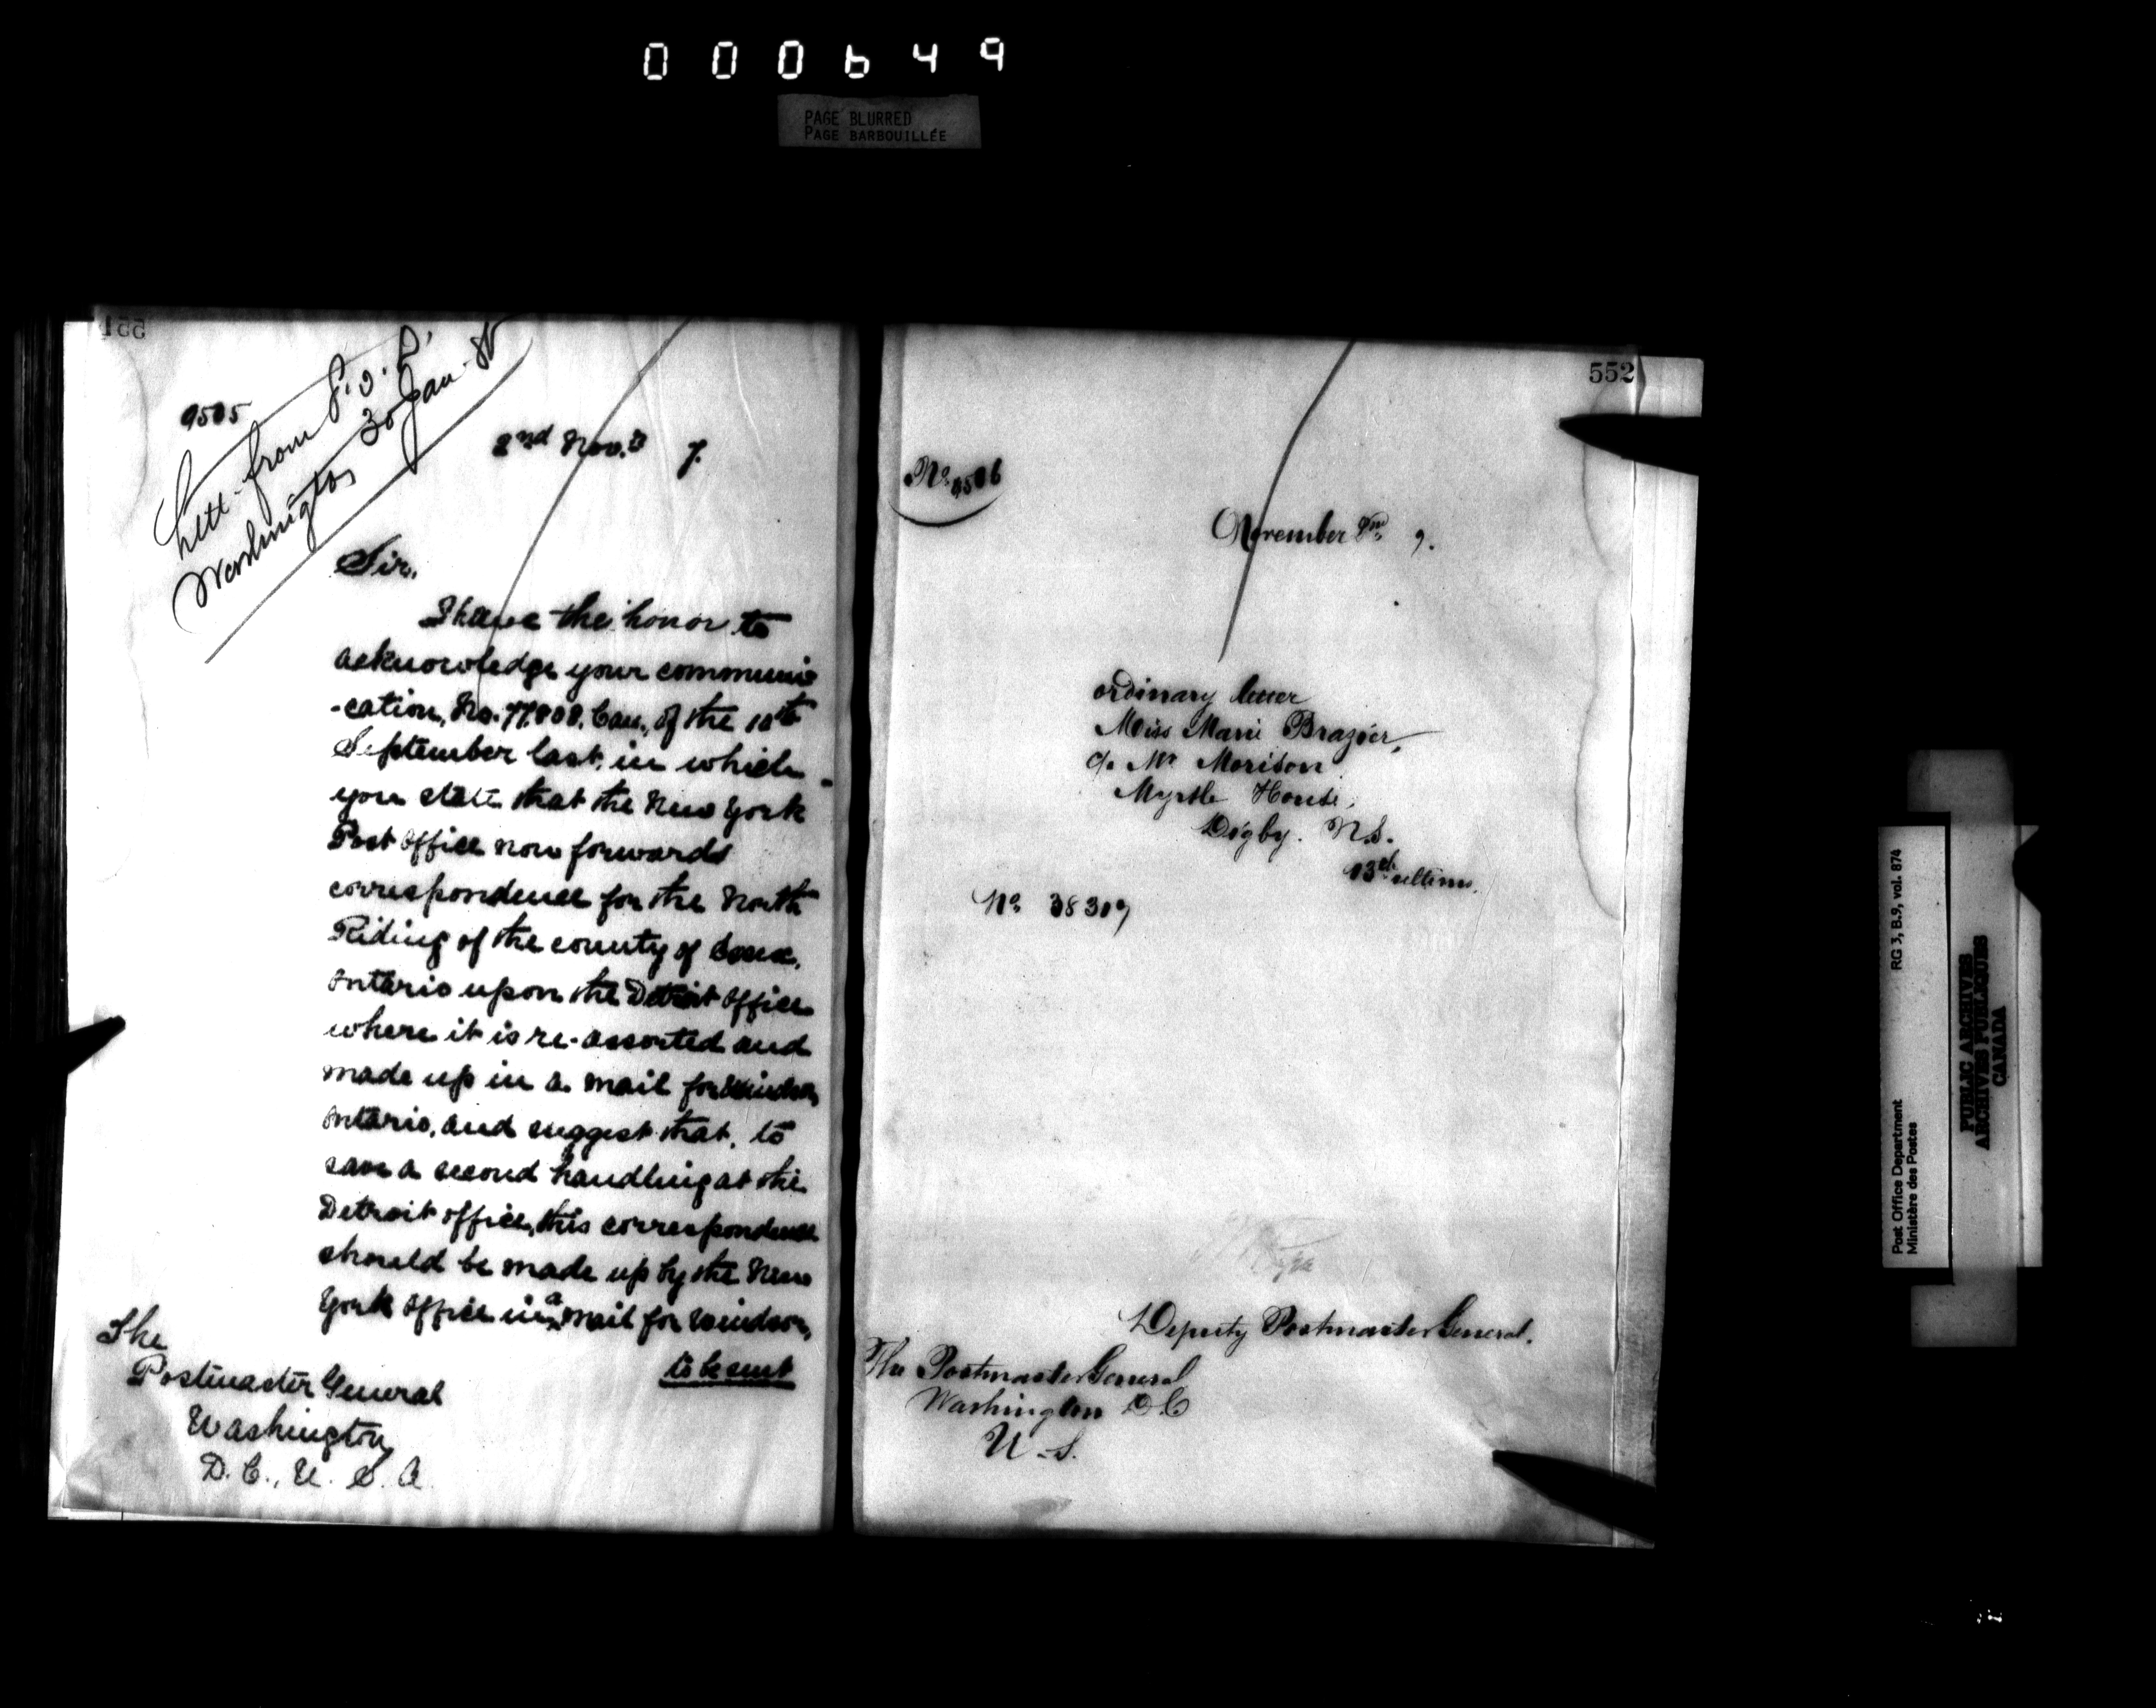 000649
PAGE BLURRED
PAGE BARBOUILLÉE
551
9505
Lett. from P.O.D.
Washington 30 Jan. 8
2nd Nov. 7.
Sir,
I have the honor to
acknowledge your communi
-cation, No. 77808. Can., of the 10th
September last, in which
you state that the New York
Post Office now forwards
correspondence for the North
Riding of the county of Essex,
Ontario upon the Detroit Office
where it is re-assorted and
made up in a mail for Windsor
Ontario, and suggest that, to
save a second handling at the
Detroit office, this correspondence
should be made up by the New
York Office in a mail for Windsor,
to be sent
The
Postmaster General
Washington
D.C., U.S.A.
552
No. 9506
November 2nd 7.
ordinary letter
Miss Marie Brazier,
c/o Mr Morison
Myrtle House,
Digby. N.S.
13 ultimo.
No 38307
Deputy Postmaster General.
The Postmaster General
Washington D.C
U.S.
RG 3, B.9, vol. 874
Post Office Department
Ministère des Postes
PUBLIC ARCHIVES
ARCHIVES PUBLIQUES
CANADA